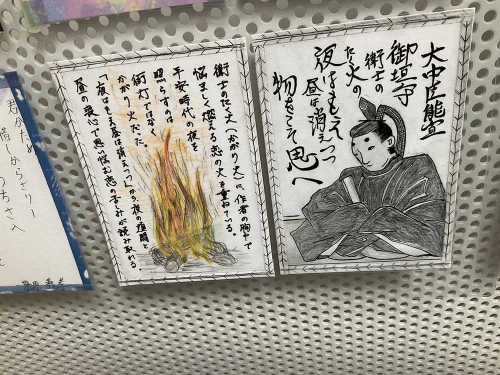 大中臣能宣
御垣守
衛士の
たく火の
夜はもえて
昼は消えつつ
物をこそ思へ
衛士のたく火(かがり火)に、作者の胸中で
悩ましく燃える恋の火を重ねている。
平安時代の夜を
照らすのは
街灯ではなく
かがり火だった。
「夜はもえ昼は消えつつ」から、夜の煩悶と
昼の衰心で思い悩む恋の苦しみが読み取れる。
君がため